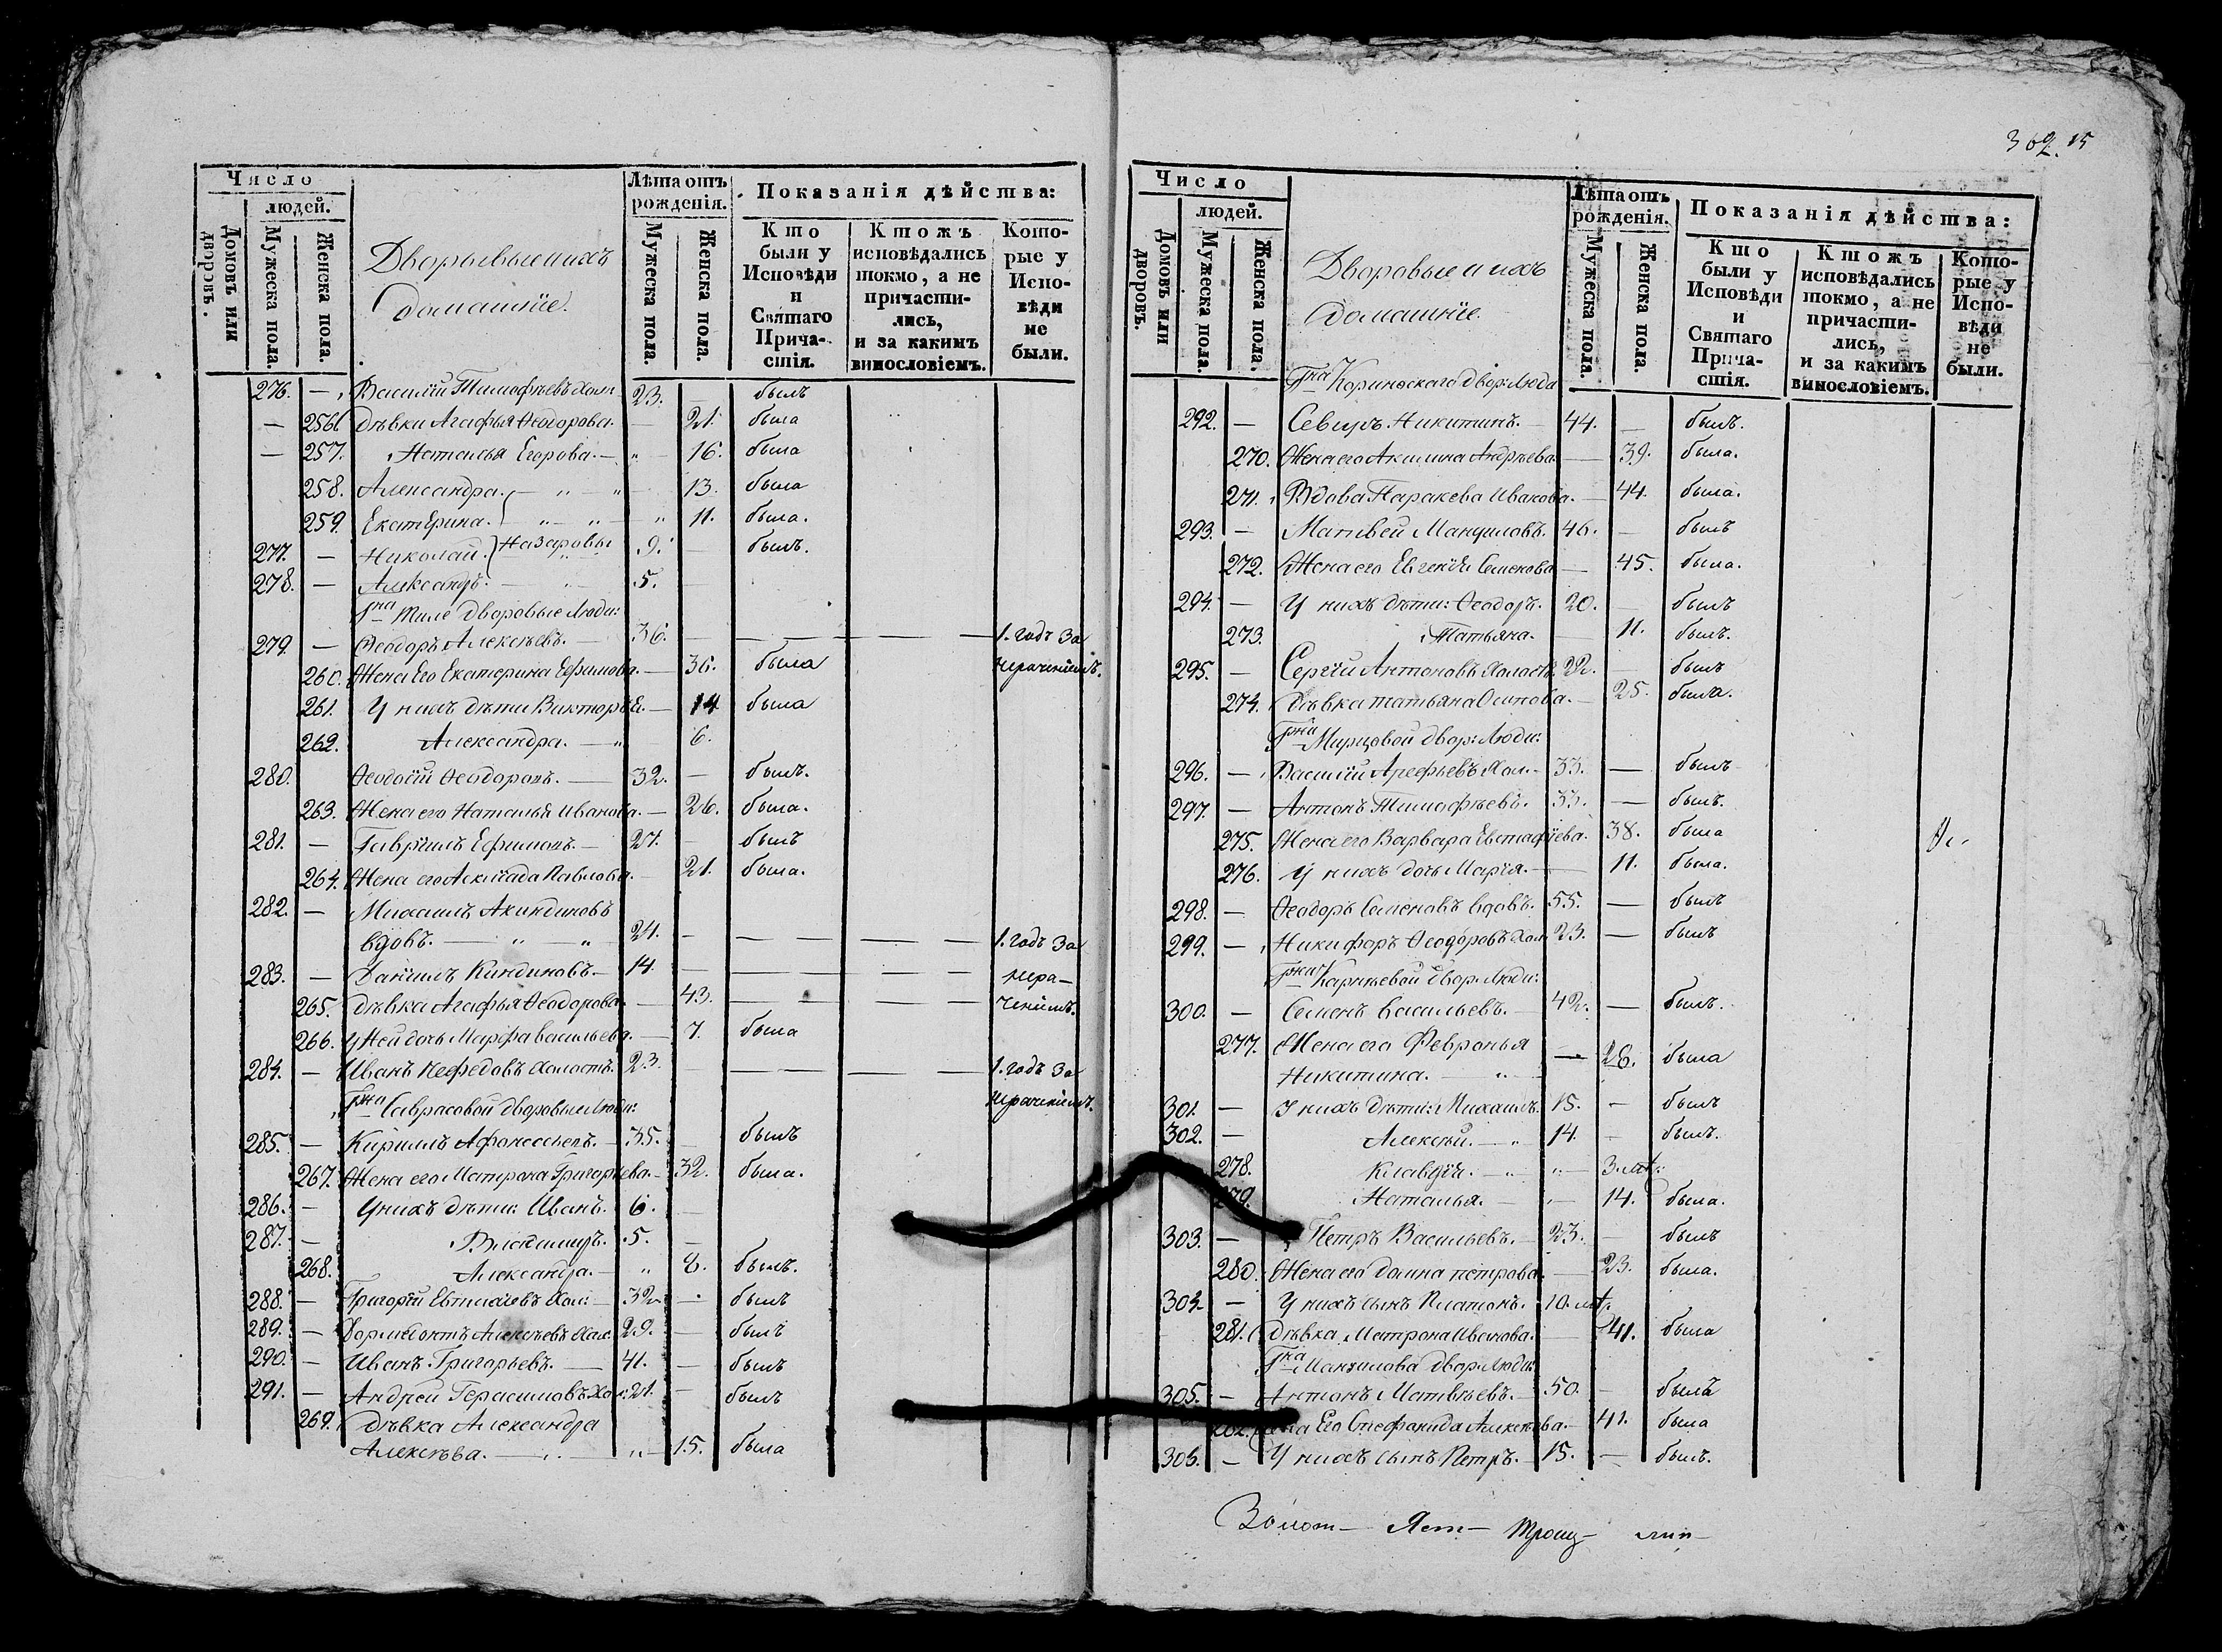 Число
людей.
Домовъ или дворовъ.
Мужеска пола.
Женска пола.
Дворовые и ихъ
домашнїе.
Лѣта отъ рожденїя.
Мужеска пола.
Женска пола.
Показанїя дѣйства:
Кто были у Исповѣди и Святаго Причастїя.
Ктожъ исповѣдались токмо, а не причастились, и за какимъ винословїемъ.
Которые у Исповѣди не были.
276. — Василїй Тимофѣевъ Хол: 23. — былъ
— 256. дѣвки Агафья Ѳеодорова. — 21. была
— 257. Наталья Егорова. — 16. была
258. Александра. — 13. была
259. Екатерина. — 11. была.
277. — Николай. Назаровы 9. — былъ.
278. — Александръ. 5.
Гна Тиле дворовые Люди:
279. — Ѳеодоръ Алексѣевъ. — 36. — 1. годъ за
260. Жена Его Екатерина Ефимова. — 36. была нераченїемъ.
261. У нихъ дѣти Викторїя. — 14 была
262. Александра. — 6.
280. Ѳеодосїй Ѳеодоровъ. — 32. — былъ.
263. Жена его Наталья Иванова. — 26. была.
281. — Гаврїилъ Ефимовъ. — 21. — былъ
264. Жена его Павлова. 21. была.
282. — Михаилъ Акиндиновъ
вдовъ. — 21. — 1. годъ за
283. — Данїилъ Киндиновъ. — 14. — нера-
265. дѣвка Агафья Ѳеодорова. — 43. — ченїемъ.
266. у Ней дочь Марфа васильева. — 7. была
284. — Иванъ Нефедовъ Холостъ. 23. — 1. годъ за
Гжа Саврасовой дворовые Люди: нераченїемъ.
285. — Кирилъ Афонасьевъ. — 35. — былъ
267. Жена его Матрона Григорьева. — 32. была.
286. — У нихъ дѣти: Иванъ. 6. —
287. — Владимиръ. 5. —
268. Александра. — 8. былъ.
288. — Григорїй Евтихїевъ Хол: — 32. — былъ
289. — Дормедонтъ Алексѣевъ Хол: 29. — былъ
290. — Иванъ Григорьевъ. — 41. — былъ
291. — Андрей Герасимовъ Хол: 21. — былъ
269. дѣвка Александра
Алексѣва. — 15. была
302. 15
Число
людей.
Домовъ или дворовъ.
Мужеска пола.
Женска пола.
Дворовые и ихъ
домашнїе.
Лѣта отъ рожденїя.
Мужеска пола.
Женска пола.
Показанїя дѣйства:
Кто были у Исповѣди и Святаго Причастїя.
Ктожъ исповѣдались токмо, а не причастились, и за какимъ винословїемъ.
Которые у Исповѣди не были.
Гна Коринѳскаго двор: Люди
292. — Северъ Никитинъ. — 44. — былъ.
270. Жена его Акилина Андрѣева. — 39. была.
271. Вдова Паракева Иванова. — 44. была.
293. — Матвей Мануиловъ. 46. — былъ
272. Жена его Евгенїя Семенова — 45. была.
294. — У нихъ дѣти: Ѳеодоръ. 20. — былъ
273. Татьяна. — 11. былъ.
295. — Сергїй Антоновъ Холостъ. 22. — былъ
274. дѣвка татьяна Осипова. — 25. была.
Гжи Мирцовой двор: Люди:
296. — Василїй Арефьевъ Хол. — 33. — былъ
297. — Антонъ Тимофѣевъ. 33. — былъ.
275. Жена его Варвара Евстафїева. 38. была
276. У нихъ дочь Марїя. — 11. была.
298. — Ѳеодоръ Семеновъ вдовъ. 55. — былъ
299. — Никифоръ Ѳеодоровъ Хол: 23. — былъ
Гжи Карнѣевой двор: Люди:
300. — Семенъ Васильевъ. — 42. — былъ.
277. Жена его Февронья
Никитина. — 26. была
301. — У нихъ дѣти: Михаилъ. 15. — былъ
302. — Алексѣй. — 14. — былъ.
278. Клавдїя. — 3. мѣ:
279. Наталья. — 14. была.
303. — Петръ Васильевъ. — 23. — былъ
280. Жена его домна петрова. — 23. была.
304. — У нихъ сынъ Платонъ. 10. мѣ:
281. дѣвка Матрона Иванова. — 41. была
Гна Мануилова двор: Люди:
305. — Антонъ Матвѣевъ. — 50. — былъ
282. Жена Его Стефанида Алексѣева. — 41. была
306. — У нихъ сынъ Петръ. — 15. — былъ.
Троиц-